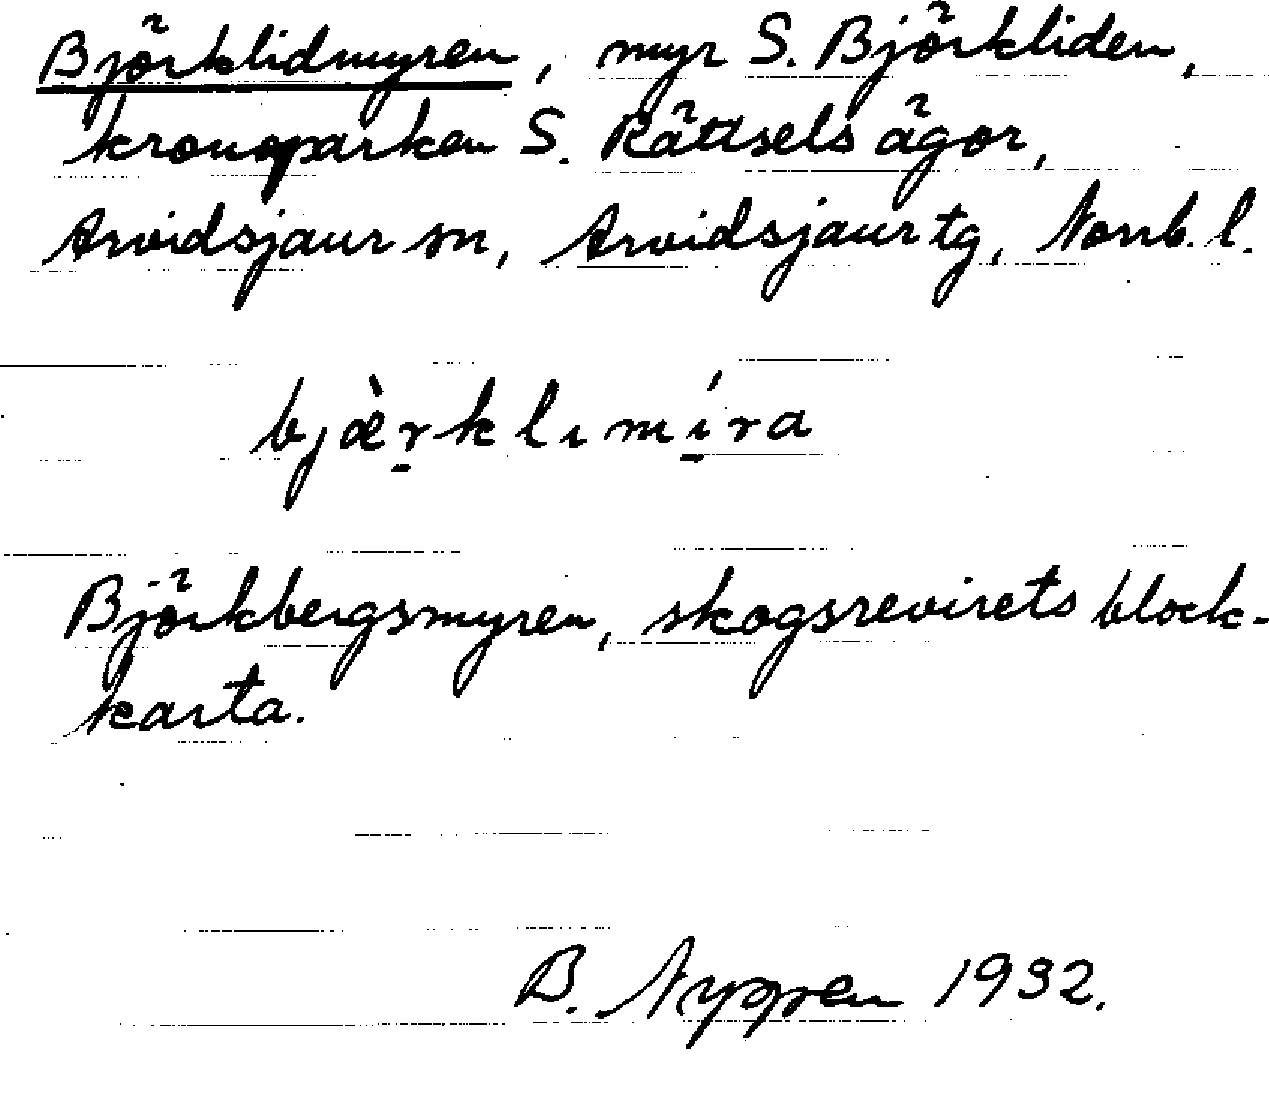 Björklidmyren, myr S. Björkliden,
kronoparken S. Rättsels ägor,
Arvidsjaur sn, Arvidsjaur tg, Norrb. l.
bjæ̀r̠klımí̠ra
Björkbergsmyren, skogsrevirets block-
karta.
B. 1932.